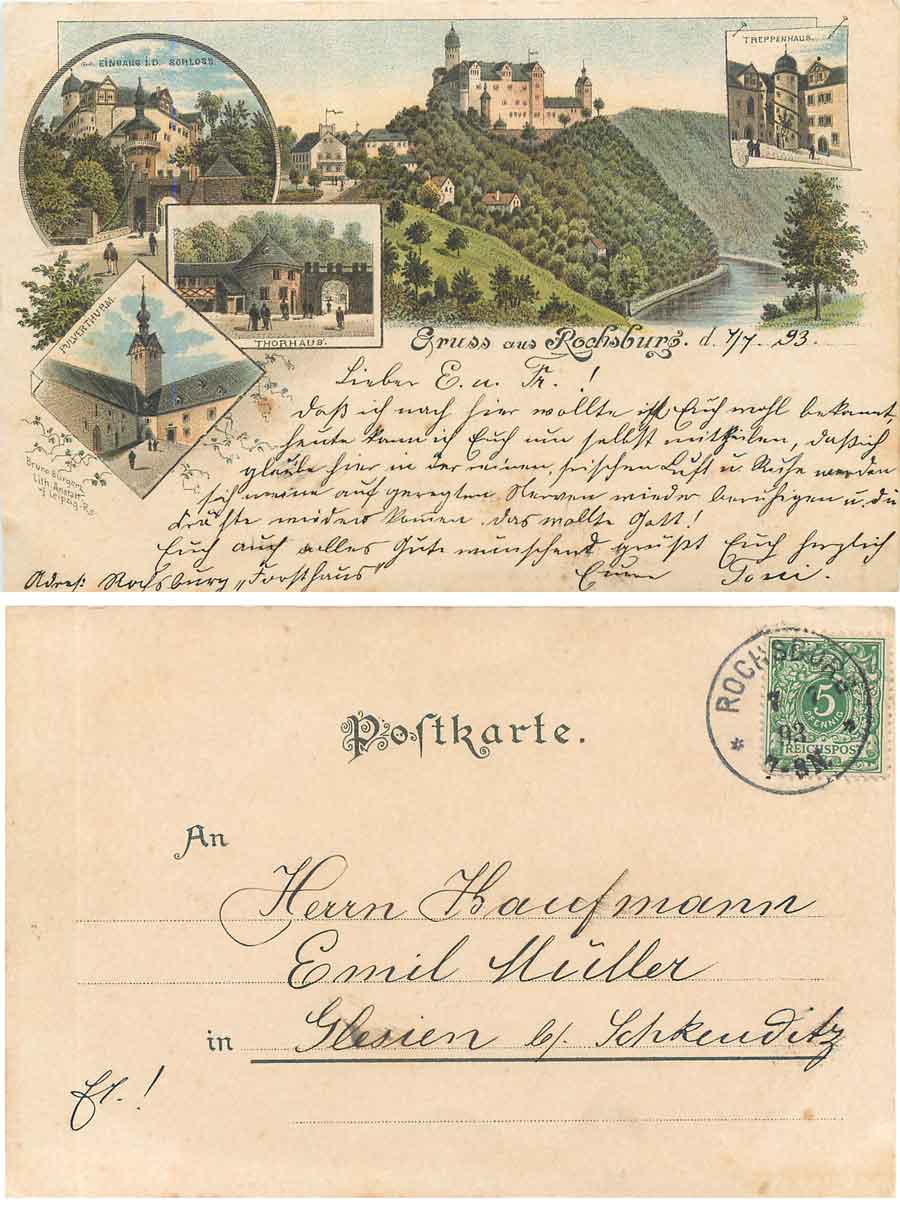 EINGANG I.D. SCHLOSS
TREPPENHAUS.
THORHAUS.
PULVERTHURM.
Bruno Bürger,
Lith. Anstalt
Leipzig-R.
Gruss aus Rochsburg. d. 7/7. 93.
Lieber E. u. Fr. !
Daß ich nach hier wollte ist Euch wohl bekannt,
heute kann ich Euch nun selbst mittheilen, daß ich
glaube hier in der reinen, frischen Luft u. Ruhe werden
sich meine auf geregten Nerven wieder beruhigen u. die
Kräfte wieder kommen. das wollte Gott!
Euch auch alles Gute wünschend grüßt Euch herzlich
Eure
Adres: Rochsburg „Forsthaus“
Postkarte.
ROCHSBURG
7 7
93
7-8N
5
PFENNIG
REICHSPOST
An
Herrn Kaufmann
Emil Müller
in Glesien b/ Schkeuditz
Fr. !